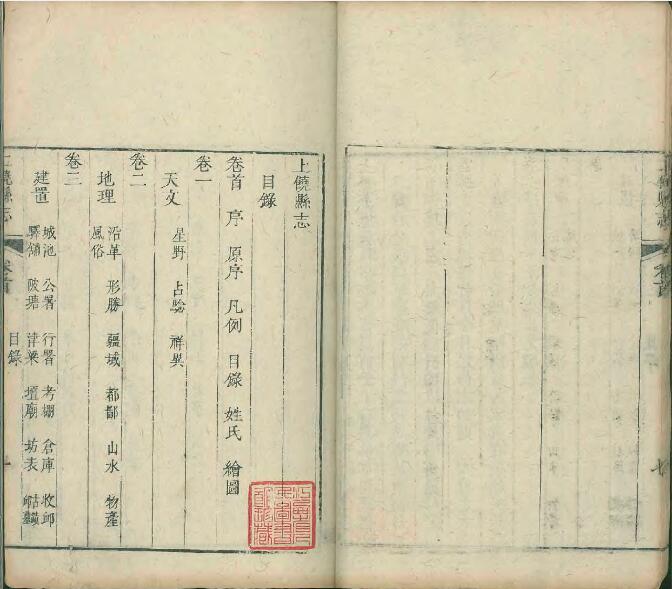 上饒縣志
目錄
卷首 序 原序 凡例 目錄 姓氏 繪圖
卷一
天文 星野 占驗 祥異
卷二
地理 沿革 形勝 疆域 都鄙 山水 物產
風俗
卷三
建置 城池 公署 行署 考棚 倉庫 收卹
驛鋪 陂塘 津梁 壇廟 坊表
上饒縣志 卷首 目錄